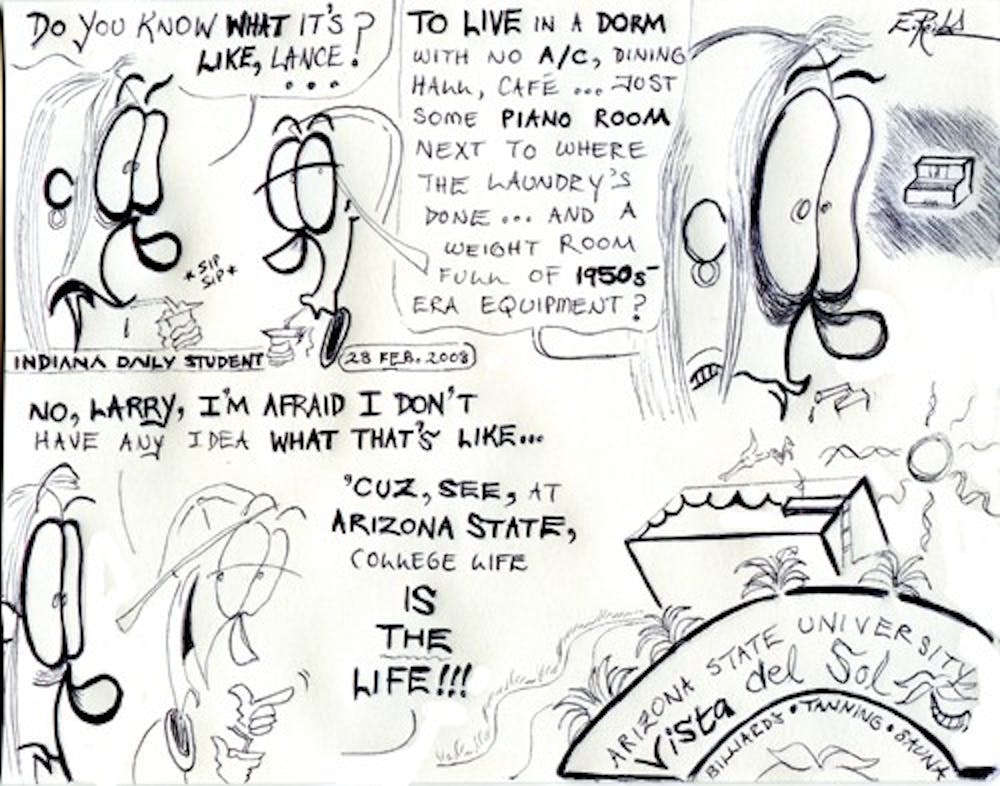 DO YOU KNOW WHAT IT'S
LIKE, LANCE?
...
*SIP
SIP*
TO LIVE IN A DORM
WITH NO A/C, DINING
HALL, CAFÉ ... JUST
SOME PIANO ROOM
NEXT TO WHERE
THE LAUNDRY'S
DONE ... AND A
WEIGHT ROOM
FULL OF 1950s
ERA EQUIPMENT?
INDIANA DAILY STUDENT
28 FEB. 2008
NO, LARRY, I'M AFRAID I DON'T
HAVE ANY IDEA WHAT THAT'S LIKE...
'CUZ, SEE, AT
ARIZONA STATE,
COLLEGE LIFE
IS
THE
LIFE!!!
ARIZONA STATE UNIVERSITY
Vista del Sol
BILLIARDS • TANNING • SAUNA